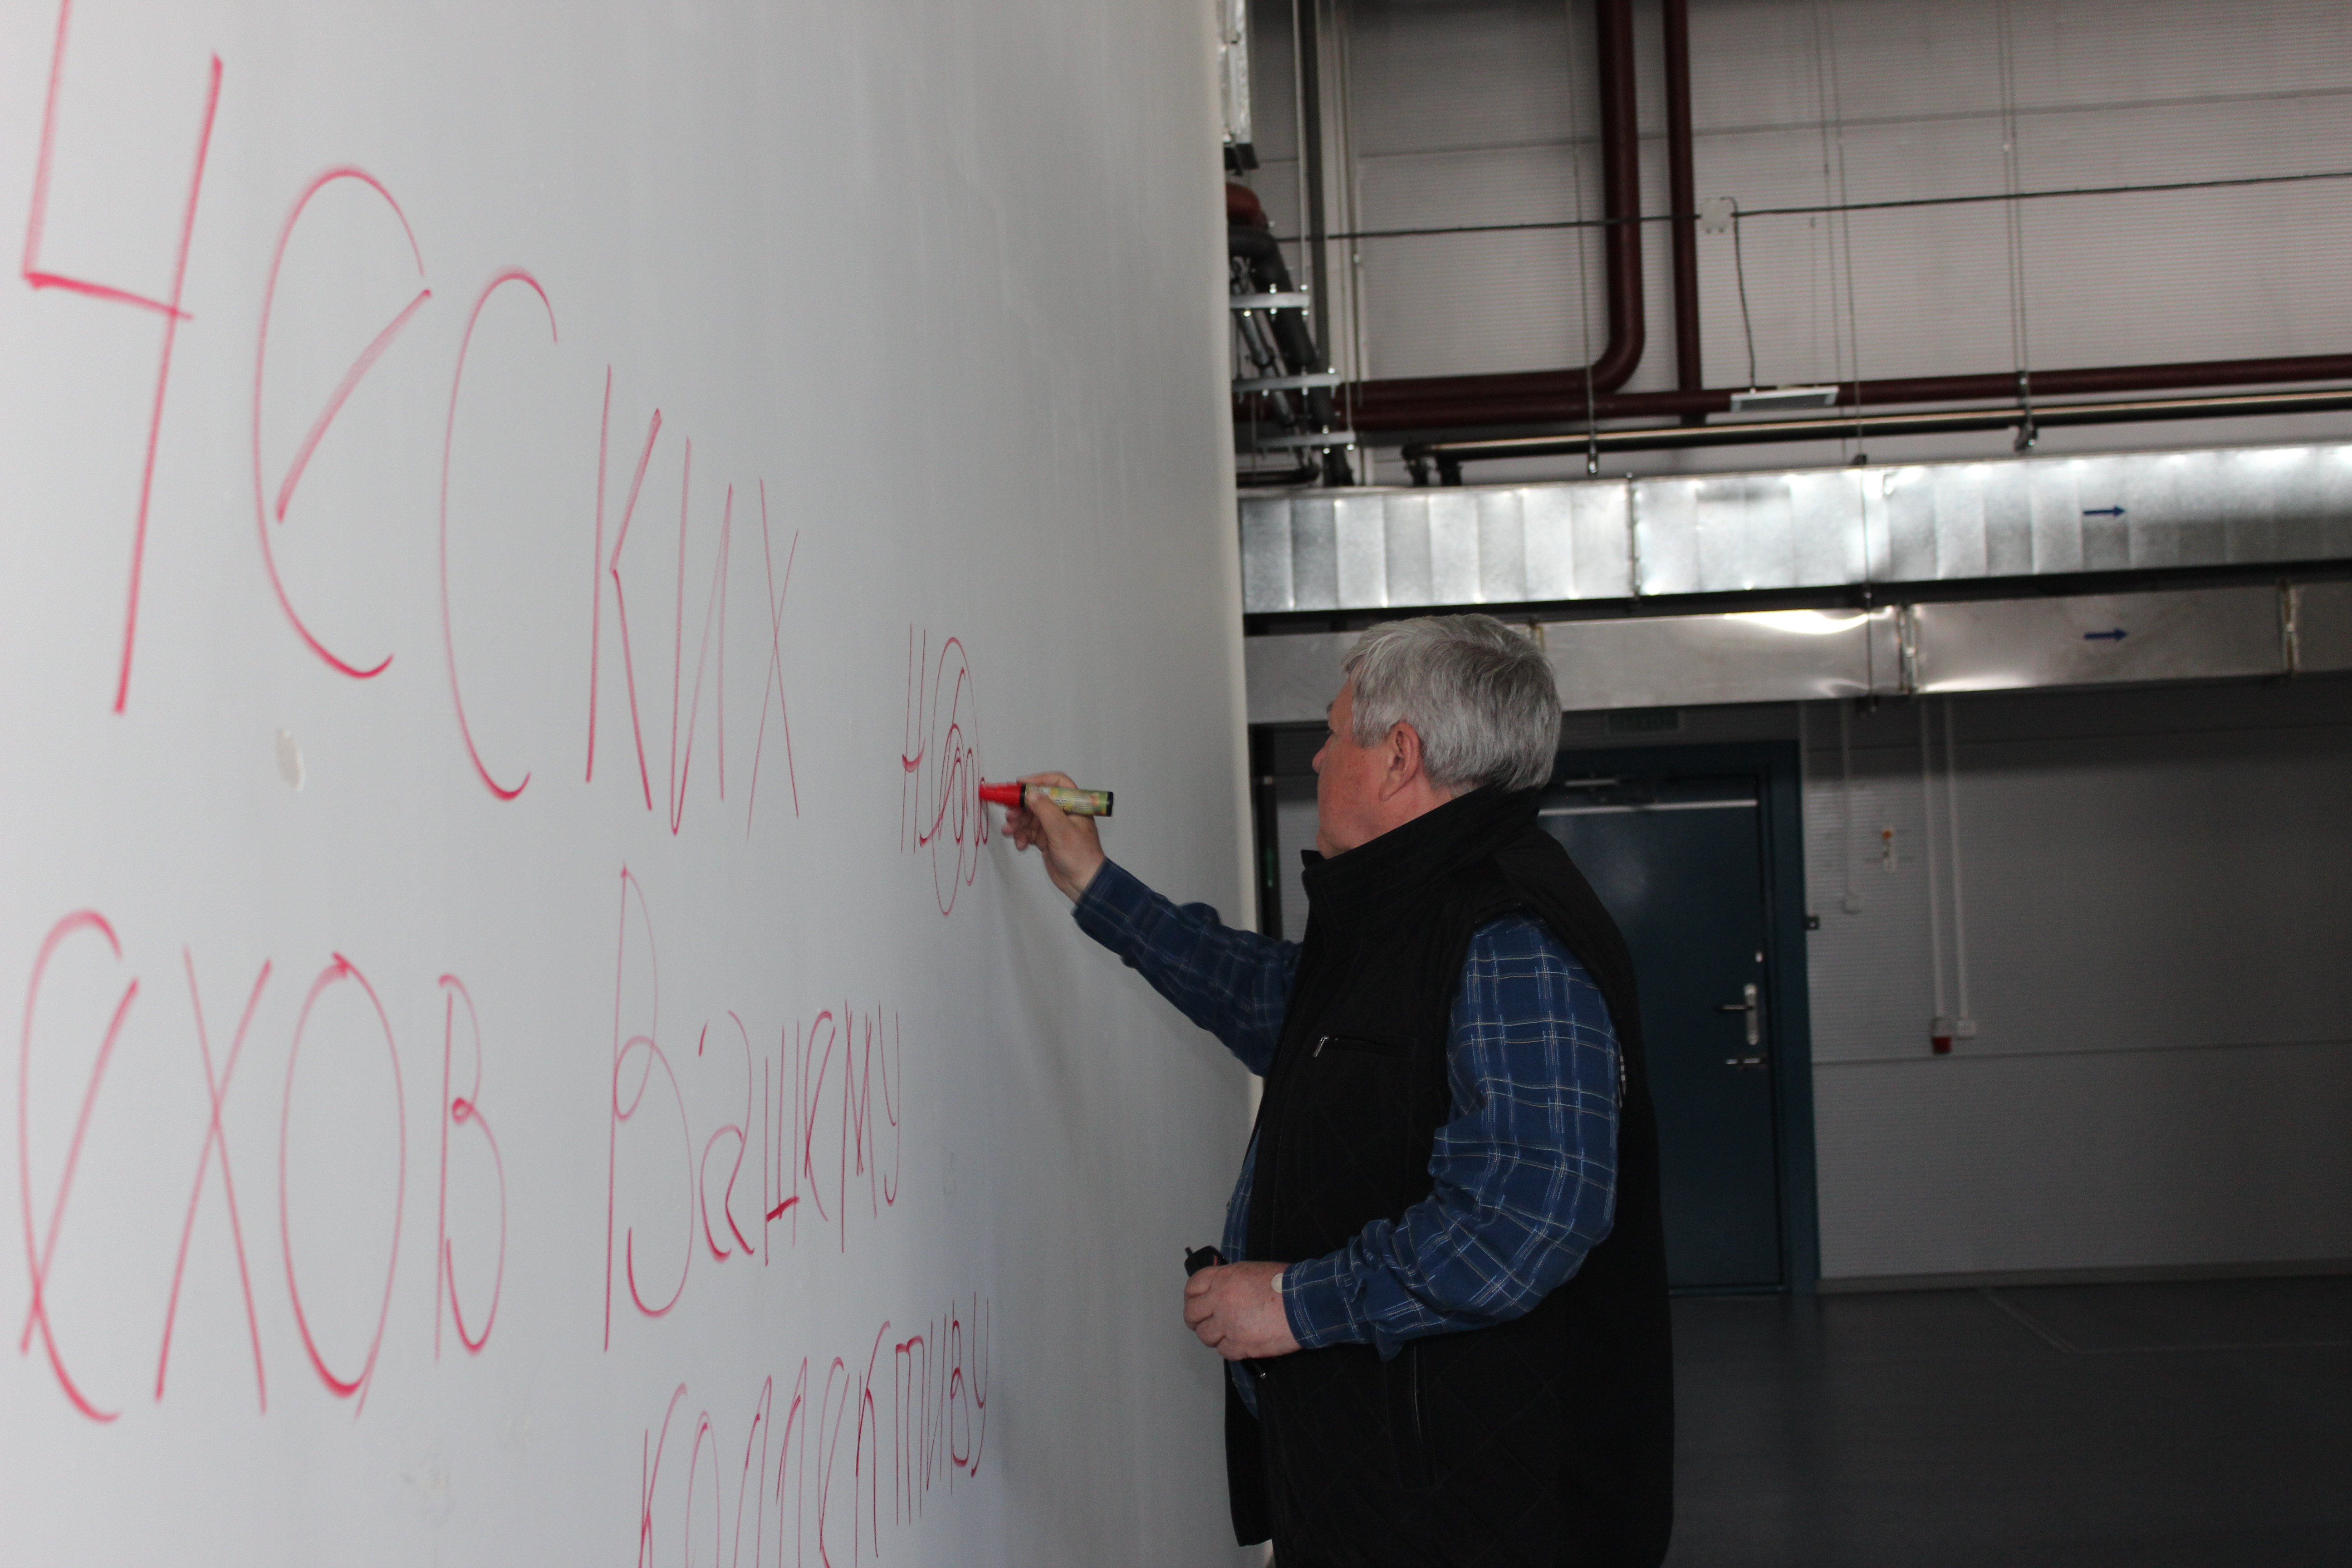 ческих
ехов Вашему
коллективу